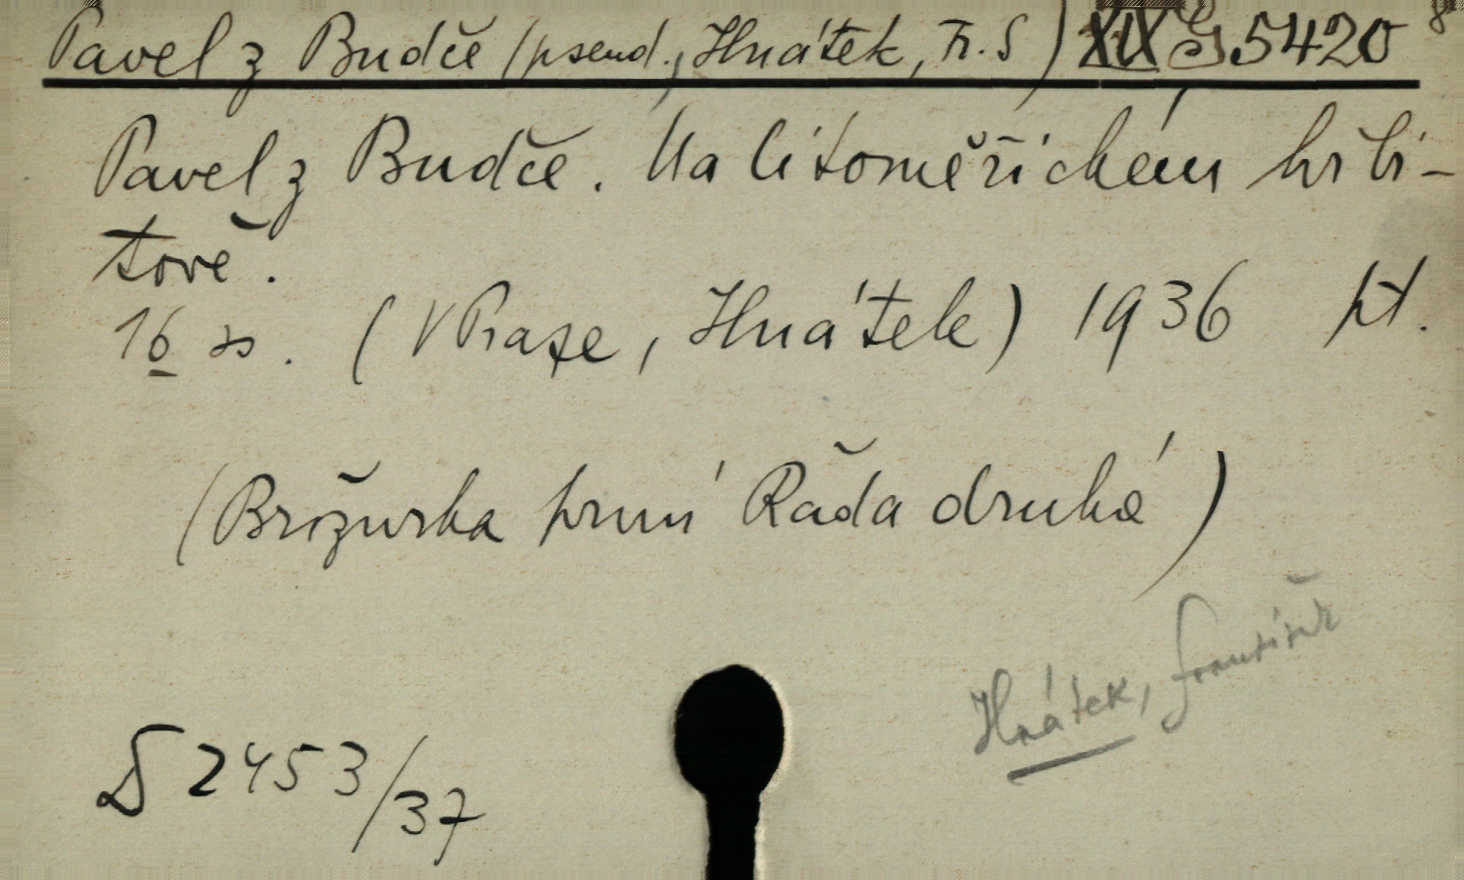 Pavel z Budče (pseud., Hnátek, Fr. S) XIX G 5420
Pavel z Budče. Na litoměřickém hřbi-
tově.
16 ss. (V Praze, Hnátek) 1936 pt.
(Brožurka první Řada druhá)
Hnátek, František
D 2453/37